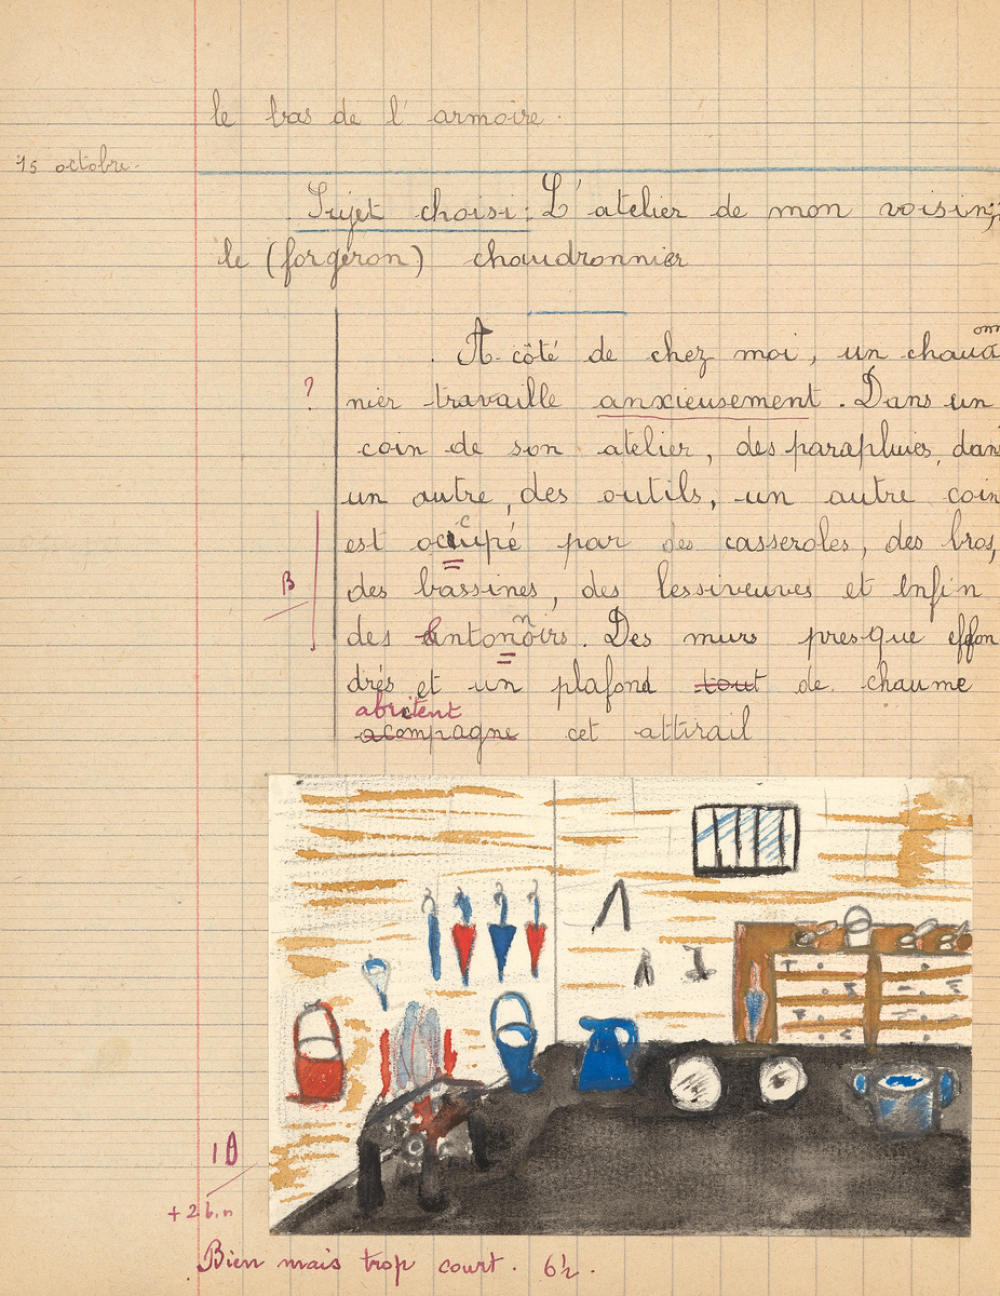 le bas de l'armoire.
15 octobre.
Sujet choisi : L'atelier de mon voisin;
le (forgeron) chaudronnier
A côté de chez moi, un chaud
onn
? nier travaille anxieusement. Dans un
coin de son atelier, des parapluies, dans
un autre, des outils, un autre coin
c
est ocupé par des casseroles, des bros,
B des bassines, des lessiveuses et enfin
n
des entonoirs. Des murs presque effon
drés et un plafond tout de chaume
abritent
acompagne cet attirail
1B
+ 2 b.n
Bien mais trop court. 6½.